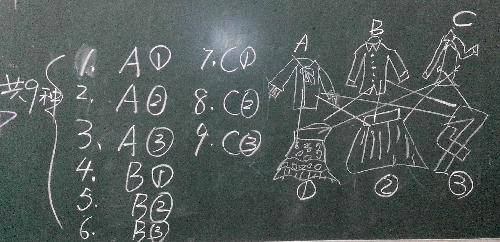 共9种
1. A①
2. A②
3. A③
4. B①
5. B②
6. B③
7. C①
8. C②
9. C③
A B C
① ② ③